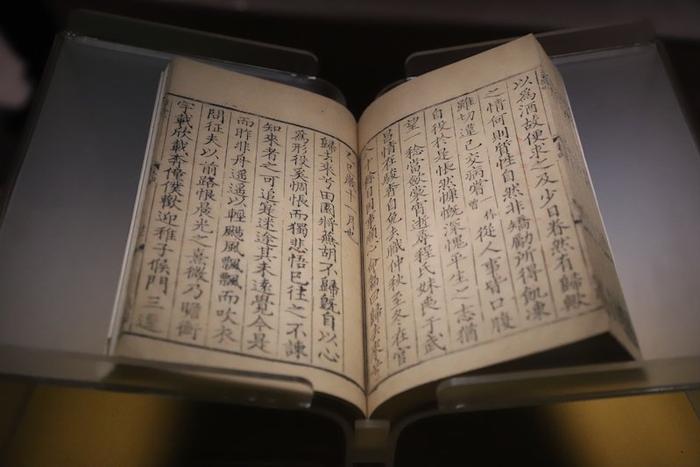 以為酒故便求之及少日眷然有歸歟
之情何則質性自然非矯勵所得飢凍
雖切違己交病嘗一作曾從人事皆口腹
自役於是悵然慷慨深愧平生之志猶
望一稔當斂裳宵逝尋程氏妹喪于武
昌情在駿奔自免去職仲秋至冬在官
八十餘日因事順心命篇曰歸去來兮
乙巳歲十一月也
歸去來兮田園將蕪胡不歸既自以心
為形役奚惆悵而獨悲悟已往之不諫
知來者之可追寔迷途其未遠覺今是
而昨非舟遙遙以輕颺風飄飄而吹衣
問征夫以前路恨晨光之熹微乃瞻衡
宇載欣載奔僮僕歡迎稚子候門三逕